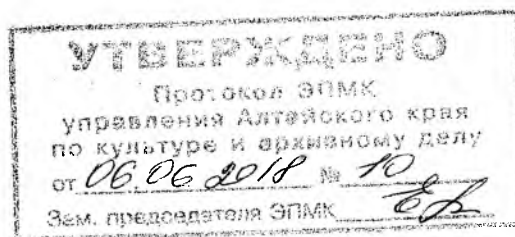 УТВЕРЖДЕНО
Протокол ЭПМК
управления Алтайского края
по культуре и архивному делу
от 06.06.2018 № 10
Зам. председателя ЭПМК